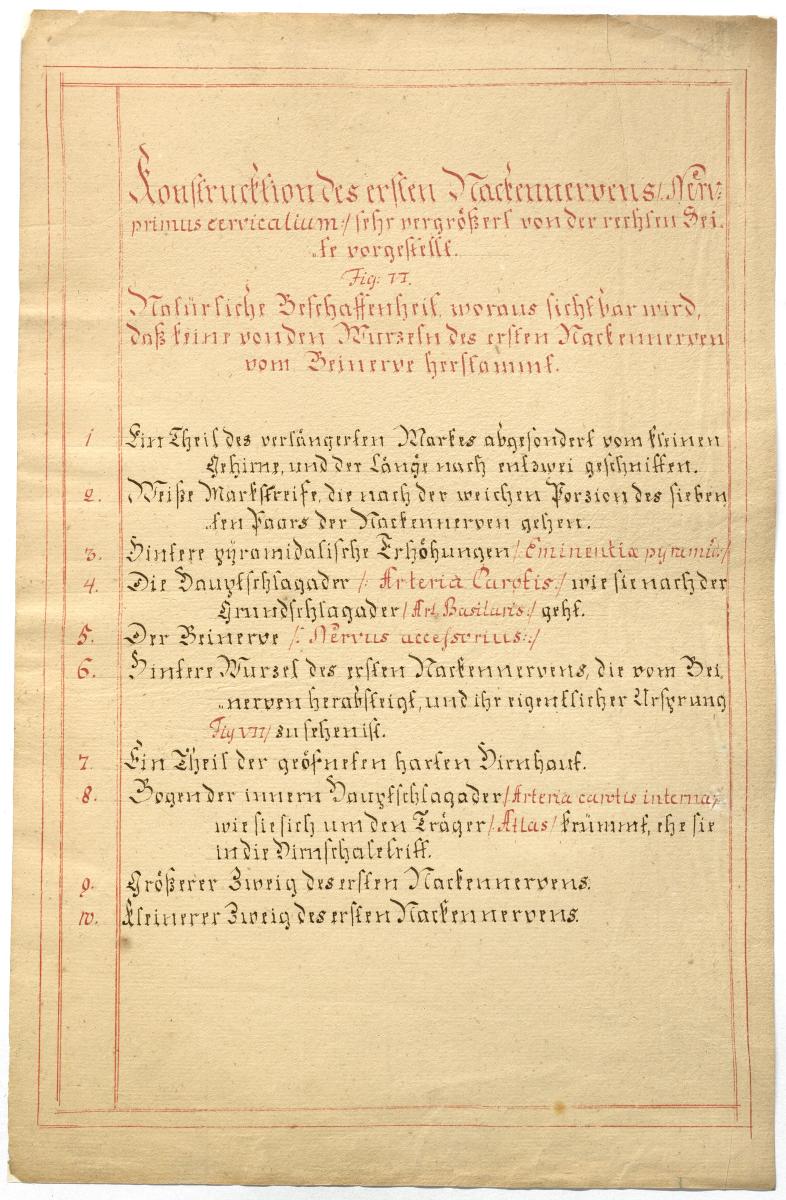 Konstrucktion des ersten Nackennervens /: Nerv:
primus cervicalium :/ sehr vergrößert von der rechten Sei-
te vorgestellt.
Fig: VI.
Natürliche Beschaffenheit, woraus sichtbar wird,
daß keine von den Wurzeln des ersten Nackennerven
vom Beinerve herstammt.
1 Ein Theil des verlängerten Markes abgesondert vom kleinen
Gehirne, und der Länge nach entzwei geschnitten.
2. Weiße Markstreife, die nach der weichen Porzion des sieben
ten Paars der Nackennerven gehen.
3. Hintere pyramidalische Erhöhungen /: Eminentiæ pyramid: /
4. Die Hauptschlagader /: Arteria Carotis :/ wie sie nach der
Grundschlagader / Art. Basilaris :/ geht.
5. Der Beinerve /: Nervus accessorius :/
6. Hintere Wurzel des ersten Nackennervens, die vom Bei-
nerven herabsteigt, und ihr eigentlicher Ursprung
Fig VII / zu sehen ist.
7. Ein Theil der geöfneten harten Hirnhaut.
8. Bogen der innern Hauptschlagader / Arteria carotis interna,
wie sie sich um den Träger / Atlas / krümmt, ehe sie
in die Hirnschale tritt.
9. Größerer Zweig des ersten Nackennervens.
10. Kleinerer Zweig des ersten Nackennervens.